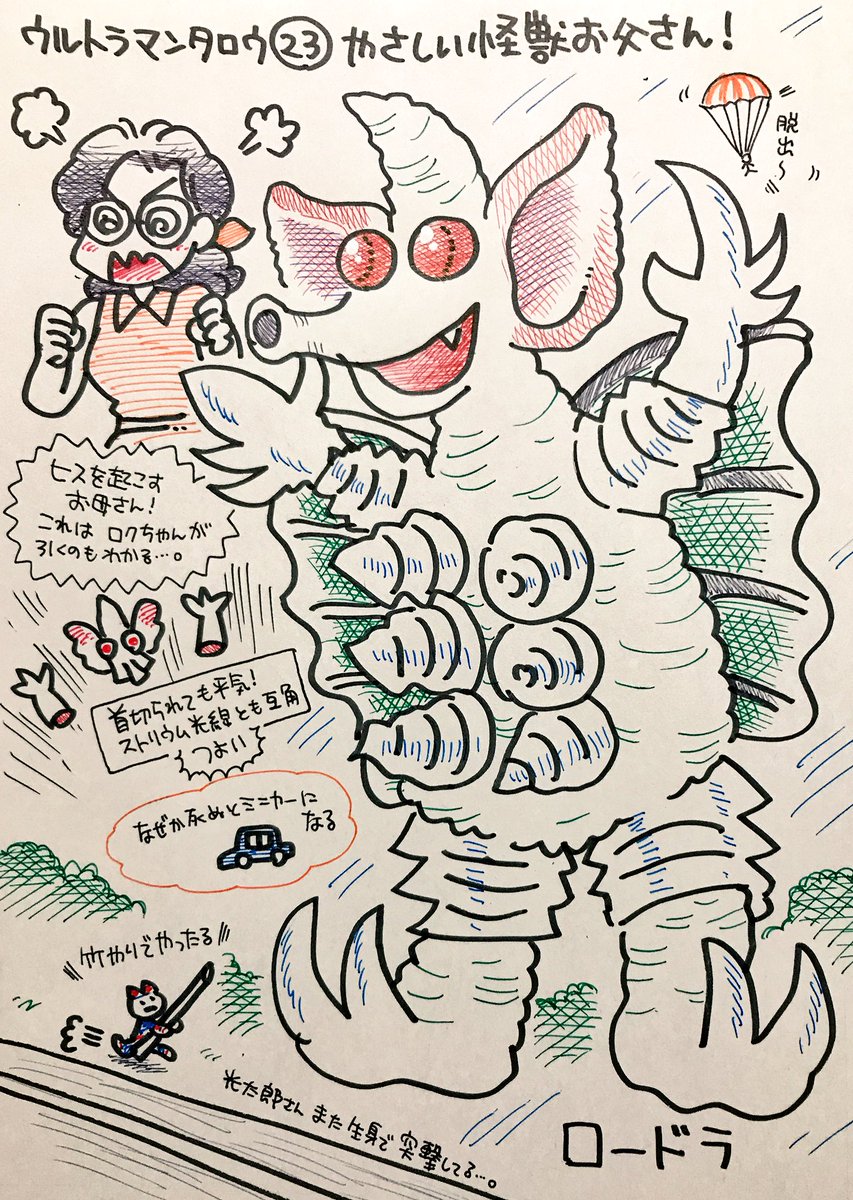 ウルトラマンタロウ㉓やさしい怪獣お父さん!
脱出〜
ヒスを起こす
お母さん!
これは ロクちゃんが
引くのもわかる…。
首切られても平気!
ストリウム光線とも互角
つよいて
なぜか死ぬとミニカーに
なる
竹やりでやったる
光太郎さん また生身で突撃してる…。
ロードラ